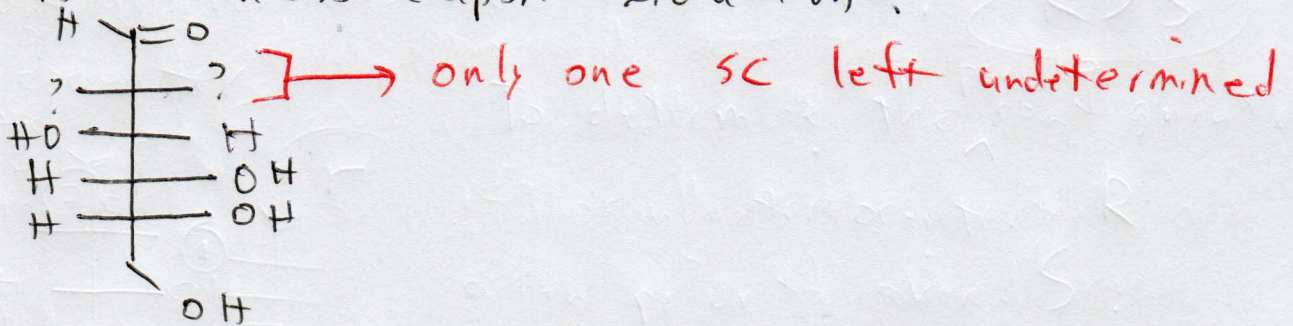 H =O
? ? → only one SC left undetermined
HO H
H OH
H OH
OH